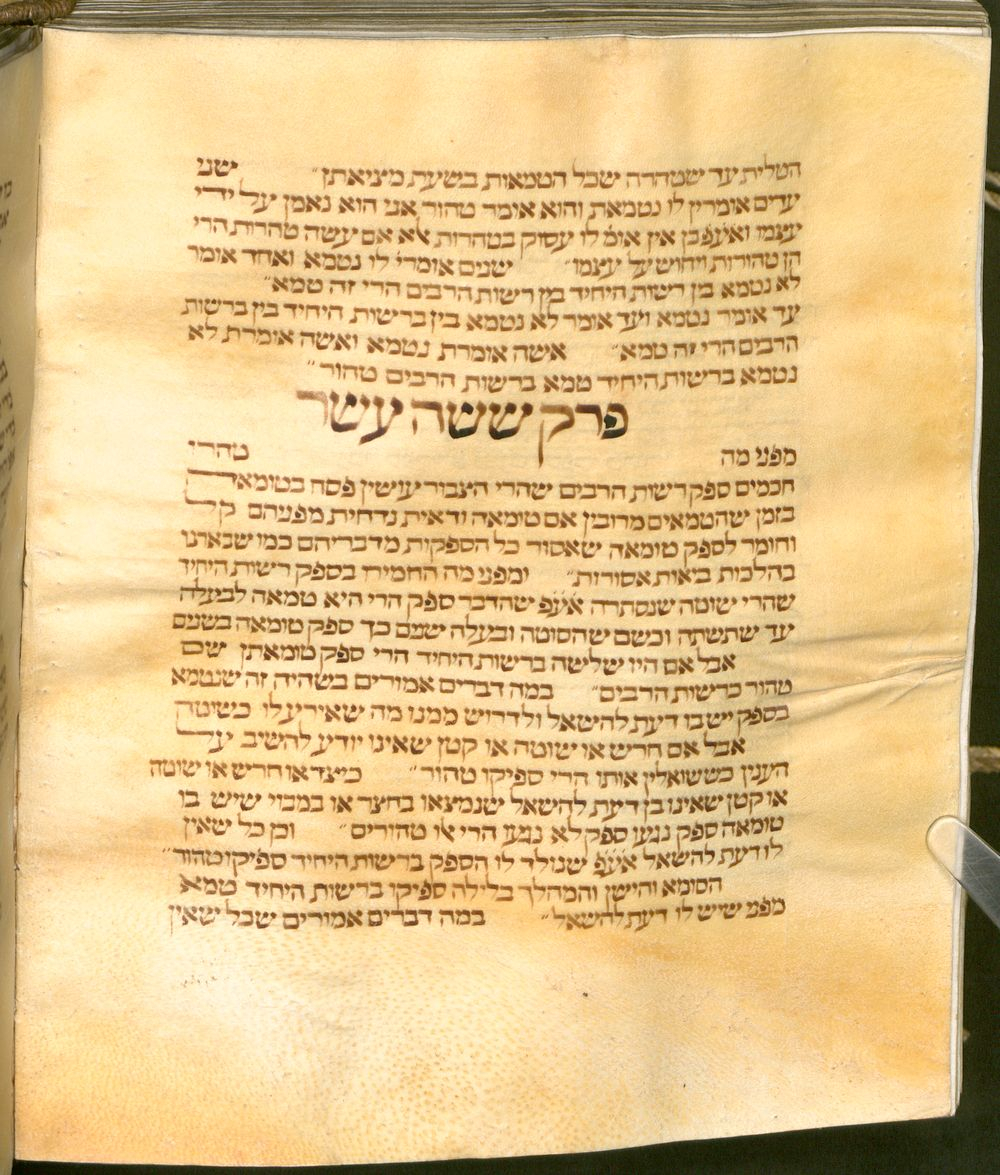 הטלית עד שטהרה שכל הטמאות בשעת מציאתן״ ישני
עדים אומרין לו נטמאת והוא אומר טהור אני הוא נאמן על ידי
עצמו ואעפכן אין אומ׳ לו עסוק בטהרות אלא אם עשה טהרות הרי
הן טהורות ויחוש על עצמו״ ישנים אומרי׳ לו נטמא ואחד אומר
לא נטמא בין רשות היחיד בין רשות הרבים הרי זה טמא״
עד אומר נטמא ועד אומר לא נטמא בין ברשות היחיד בין ברשות
הרבים הרי זה טמא״ אשה אומרת נטמא ואשה אומרת לא
נטמא ברשות היחיד טמא ברשות הרבים טהור״
פרק ששה עשר
מפני מה טהרו
חכמים ספק רשות הרבים שהרי הצבור עושין פסח בטומאה
בזמן שהטמאים מרובין אם טומאה ודאית נדחית מפניהם קל
וחומר לספק טומאה שאסור כל הספקות מדבריהם כמו שבארנו
בהלכות ביאות אסורות״ ומפני מה החמירו בספק רשות היחיד
שהרי שוטה שנסתרה אעפ שהדבר ספק הרי היא טמאה לבעלה
עד שתשתה וכשם שהסוטה ובעלה שנים כך ספק טומאה בשנים
אבל אם היו שלישה ברשות היחיד הרי ספק טומאתן שם
טהור כרשות הרבים״ במה דברים אמורים בשהיה זה שנטמא
בספק יש בו דעת להישאל ולדרוש ממנו מה שאירע לו כשוטה
אבל אם חריש או שוטה או קטן שאינו יודע להשיב על
הענין כששואלין אותו הרי ספיקו טהור״ כיצד או חריש או שוטה
או קטן שאינו בן דעת להישאל שנמצאו בחצר או במבוי שיש בו
טומאה ספק נגעו ספק לא נגעו הרי אלו טהורים״ וכן כל שאין
לו דעת להשאל אעפ שנולד לו הספק ברשות היחיד ספיקו טהור״
הסומא והישן והמהלך בלילה ספיקו ברשות היחיד טמא
מפני שיש לו דעת להשאל״ במה דברים אמורים שכל שאין